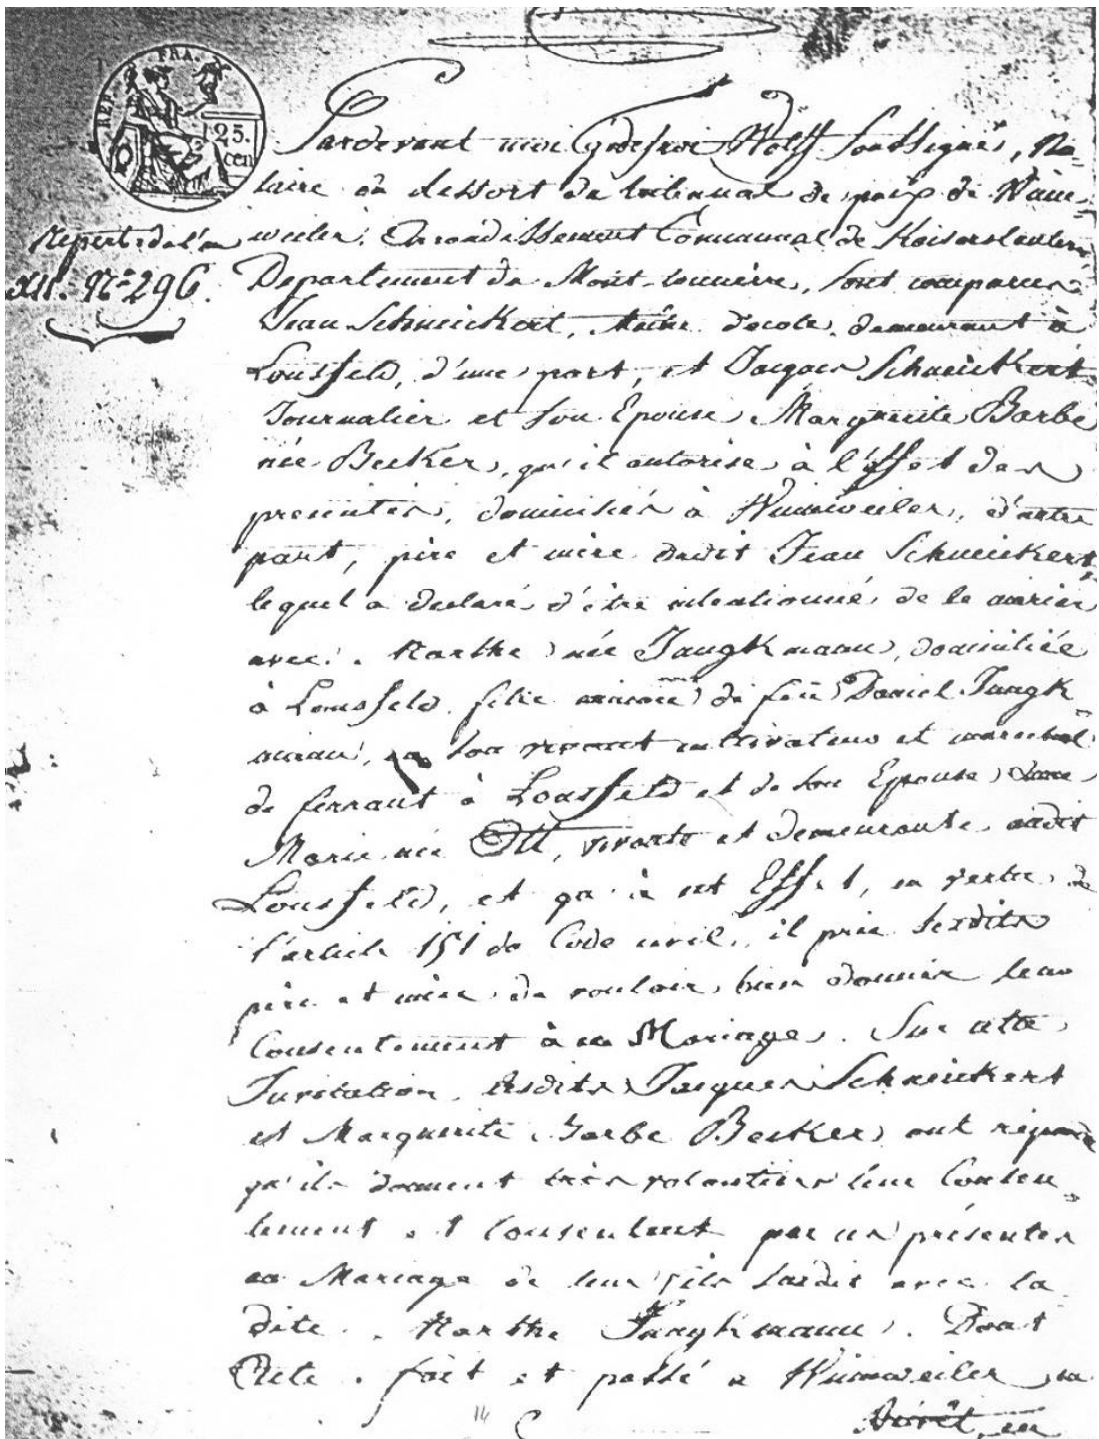 REP. FRA.
25.
cen
Pardevant moi Godefroi Wolff soussigné, No-
taire du ressort du tribunal de paix de Winn-
Repert. de l'an weiler, Arrondissement Communal de Kaiserslautern,
XII. No. 296. Departement du Mont-tonnerre, sont comparus
Jean Schneickert, Maitre d'ecole, demeurant à
Lonsfeld, d'une part, et Jacques Schneickert
Journalier et son Epouse Marguerite Barbe
née Becker, qu'il autorise à l'effet des
presentes, domiciliés à Winnweiler, d'autre
part, père et mère dudit Jean Schneickert
lequel a declaré d'être intentionné de se marier
avec Marthe née Jungkmann, domiciliée
à Lonsfeld, fille mineure de feu Daniel Jungk
mann, en son vivant cultivateur et marechal
de ferrant à Lonsfeld et de son Epouse
Marie née Ott, vivante et demeurante audit
Lonsfeld, et qu'à cet Effet, en vertu de
l'article 151 du Code civil, il prie sesdits
père et mère de vouloir bien donner leur
Consentement à ce Mariage. Sur cette
Invitation, lesdits Jacques Schneickert
et Marguerite Barbe Becker ont repondu
qu'ils donnent très volontiers leur Consen-
tement et consentent par ces présentes
au Mariage de leur fils susdit avec la
dite Marthe Jungkmann. Dont
Acte. fait et passé a Winnweiler en
en